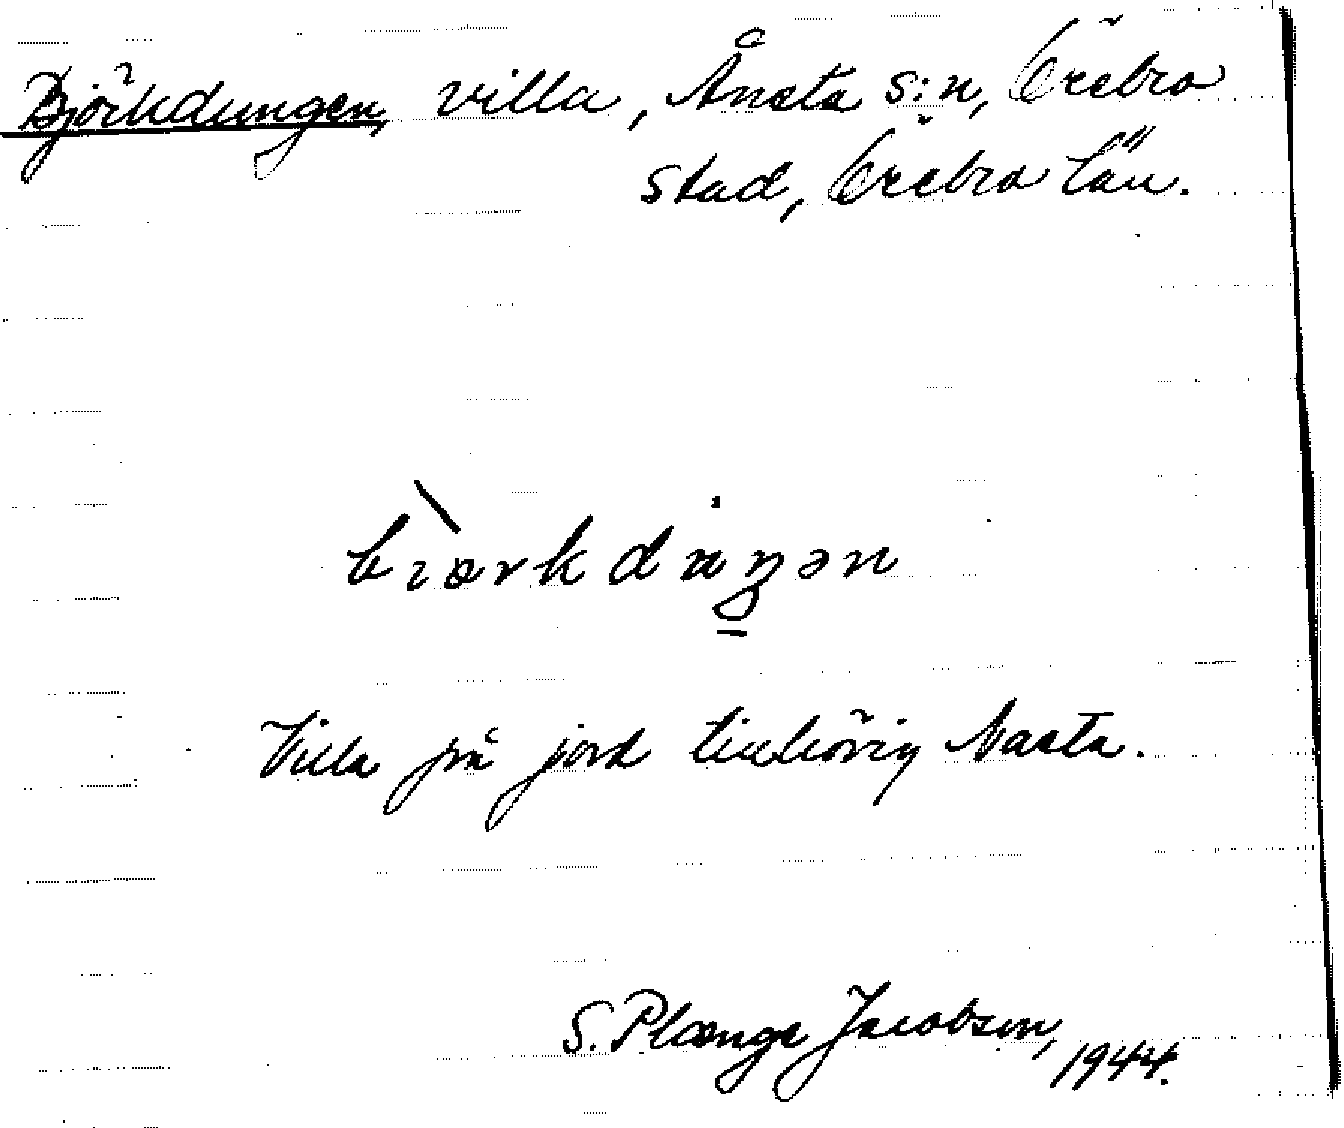 Björkdungen, villa, Ånsta s:n, Örebro
stad, Örebro län.
biœrkduŋən
Villa på jord tillhörig Nasta.
S. Plænge Jacobsen,
1944.